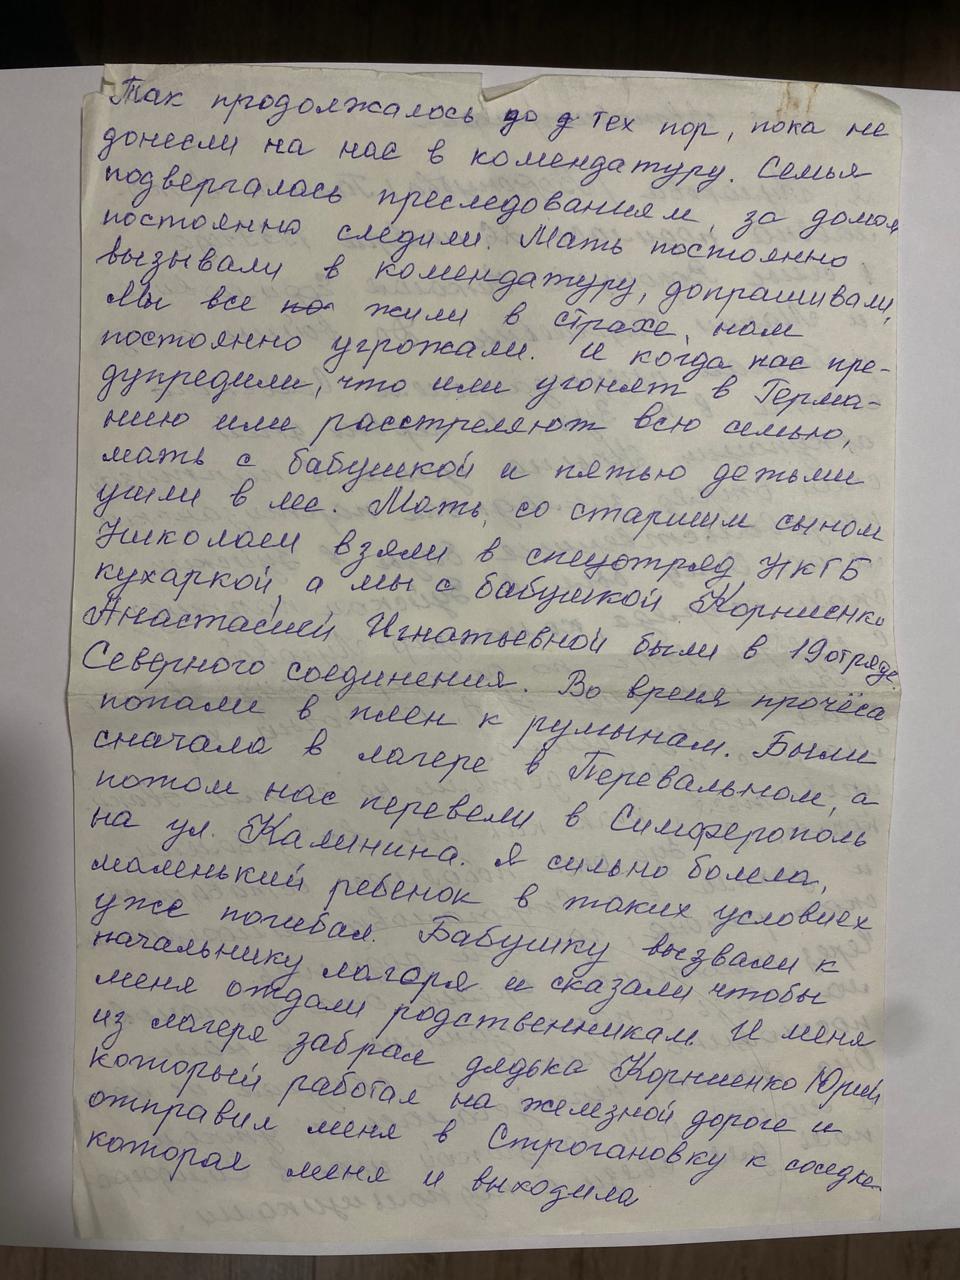 Так продолжалось до д тех пор, пока не
донесли на нас в комендатуру. Семья
подвергалась преследованиям за домом
постоянно следили. Мать постоянно
вызывали в комендатуру, допрашивали,
Мы все по жили в страхе, нам
постоянно угрожали. И когда нас пре-
дупредили, что или угонят в Герма-
нию или расстреляют всю семью,
мать с бабушкой и пятью детьми
ушли в лес. Мать, со старшим сыном
Николаем взяли в спецотряд НКГБ
кухаркой, а мы с бабушкой Корниенко
Анастасией Игнатьевной были в 19 отряде
Северного соединения. Во время прочёса
попали в плен к румынам. Были
сначала в лагере в Перевальном, а
потом нас перевели в Симферополь
на ул. Калинина. Я сильно болела,
маленький ребенок в таких условиях
уже погибал. Бабушку вызвали к
начальнику лагеря и сказали чтобы
меня отдали родственникам. И меня
из лагеря забрал дядька Корниенко Юрий
который работал на железной дороге и
отправил меня в Строгановку к соседке
которая меня и выходила